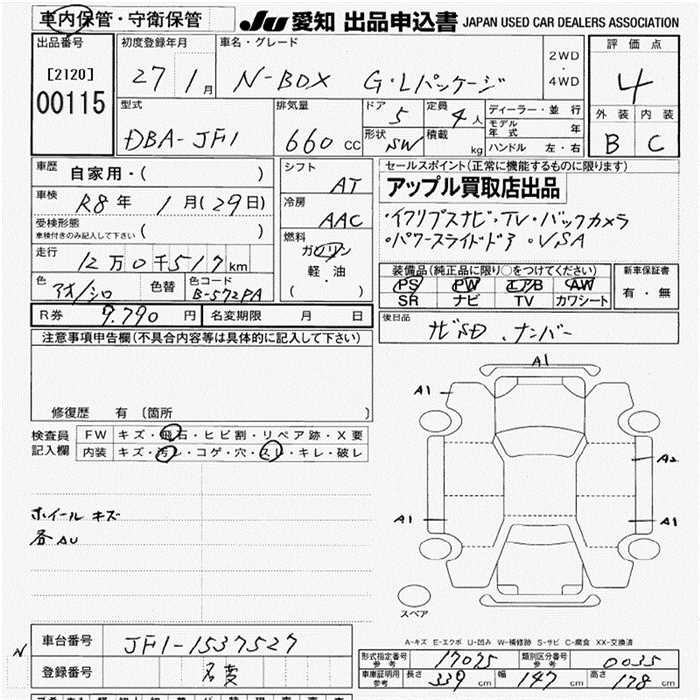 車内保管・守衛保管
JU 愛知 出品申込書 JAPAN USED CAR DEALERS ASSOCIATION
出品番号
[2120]
00115
初度登録年月
27 1月
車名・グレード
N-BOX G・Lパッケージ
2WD
・
4WD
評価点
4
外装 内装
B C
型式
DBA-JF1
排気量
660 cc
ドア 5
定員 4人
形状 SW
積載 kg
ディーラー・並行
モデル年式 年
ハンドル 左・右
車歴 自家用・( )
車検 R8年 1月(29日)
受検形態
車検付きのみ記入して下さい ( )
走行 12万0千517km
色 アオ/シロ
色替
色コード B-572PA
シフト AT
冷房 AAC
燃料
ガソリン
軽・油
( )
セールスポイント(正常に機能するものに限ります)
アップル買取店出品
・TV・バックカメラ
・パワースライドドア・VSA
装備品(純正品に限り○をつけてください)
PS PW エアB AW
SR ナビ TV カワシート
新車保証書
有・無
R券 9.790円
名変期限 月 日
後日品
ナビSD、ナンバー
注意事項申告欄(不具合内容等は具体的に記入して下さい)
修復歴 有〔箇所 〕
検査員記入欄
FW キズ・飛石・ヒビ割・リペア跡・X要
内装 キズ・汚レ・コゲ・穴・スレ・キレ・破レ
ホイール キズ
各AU
A1
A1
A2
A1
A1
スペア
A-キズ E-エクボ U-凹み W-補修跡 S-サビ C-腐食 XX-交換済
N
車台番号 JF1-1537527
登録番号 名変
形式指定番号 参考 17075
類別区分番号 参考 0035
車庫証明用 参考 長さ 339 cm 幅 147 cm 高さ 178 cm